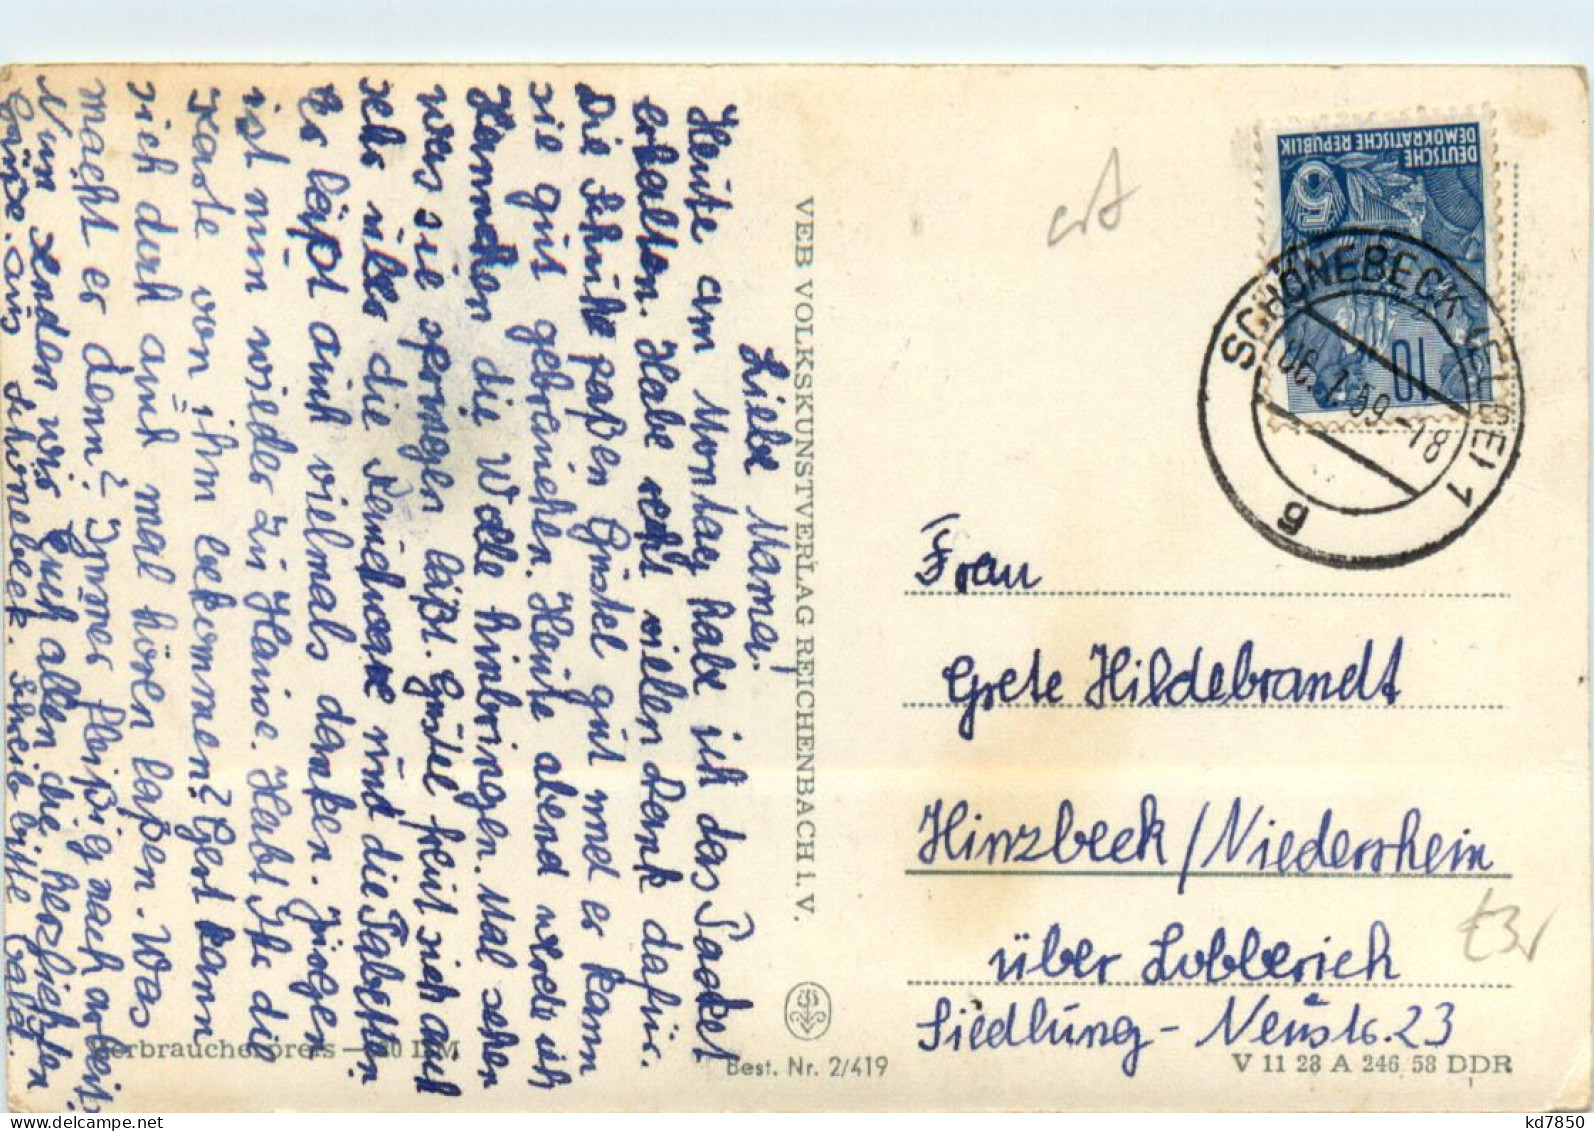 Liebe Mama!
Heute am Montag habe ich das Packet
erhalten. Habe recht vielen Dank dafür.
Die Schuhe paßen Güstel gut und er kann
sie gut gebrauchen. Heute abend werde ich
Hannchen die Wolle hinbringen. Mal sehen
was sie springen läßt. Güstel freut sich auch
sehr über die Seichware und die Tabletten
Es läßt auch vielmals danken. Jürgen
ist nun wieder zu Hause. Habt Ihr die
Karte von ihm bekommen? Gert kann
sich doch auch mal hören laßen. Was
macht er denn? Immer fleißig nach arbeit.
Nun senden wir Euch allen die herzlichsten
Grüße aus Schönebeck. Schreib bitte bald.
VEB VOLKSKUNSTVERLAG REICHENBACH i. V.
Verbraucherpreis — 20 DM
Best. Nr. 2/419
DEUTSCHE
DEMOKRATISCHE REPUBLIK
5
10
SCHÖNEBECK (ELBE) 1
-18
g
Frau
Grete Hildebrandt
Hinzbeck / Niederrhein
über Lobberich
Siedlung - Neustr. 23
V 11 28 A 246 58 DDR
kd7850